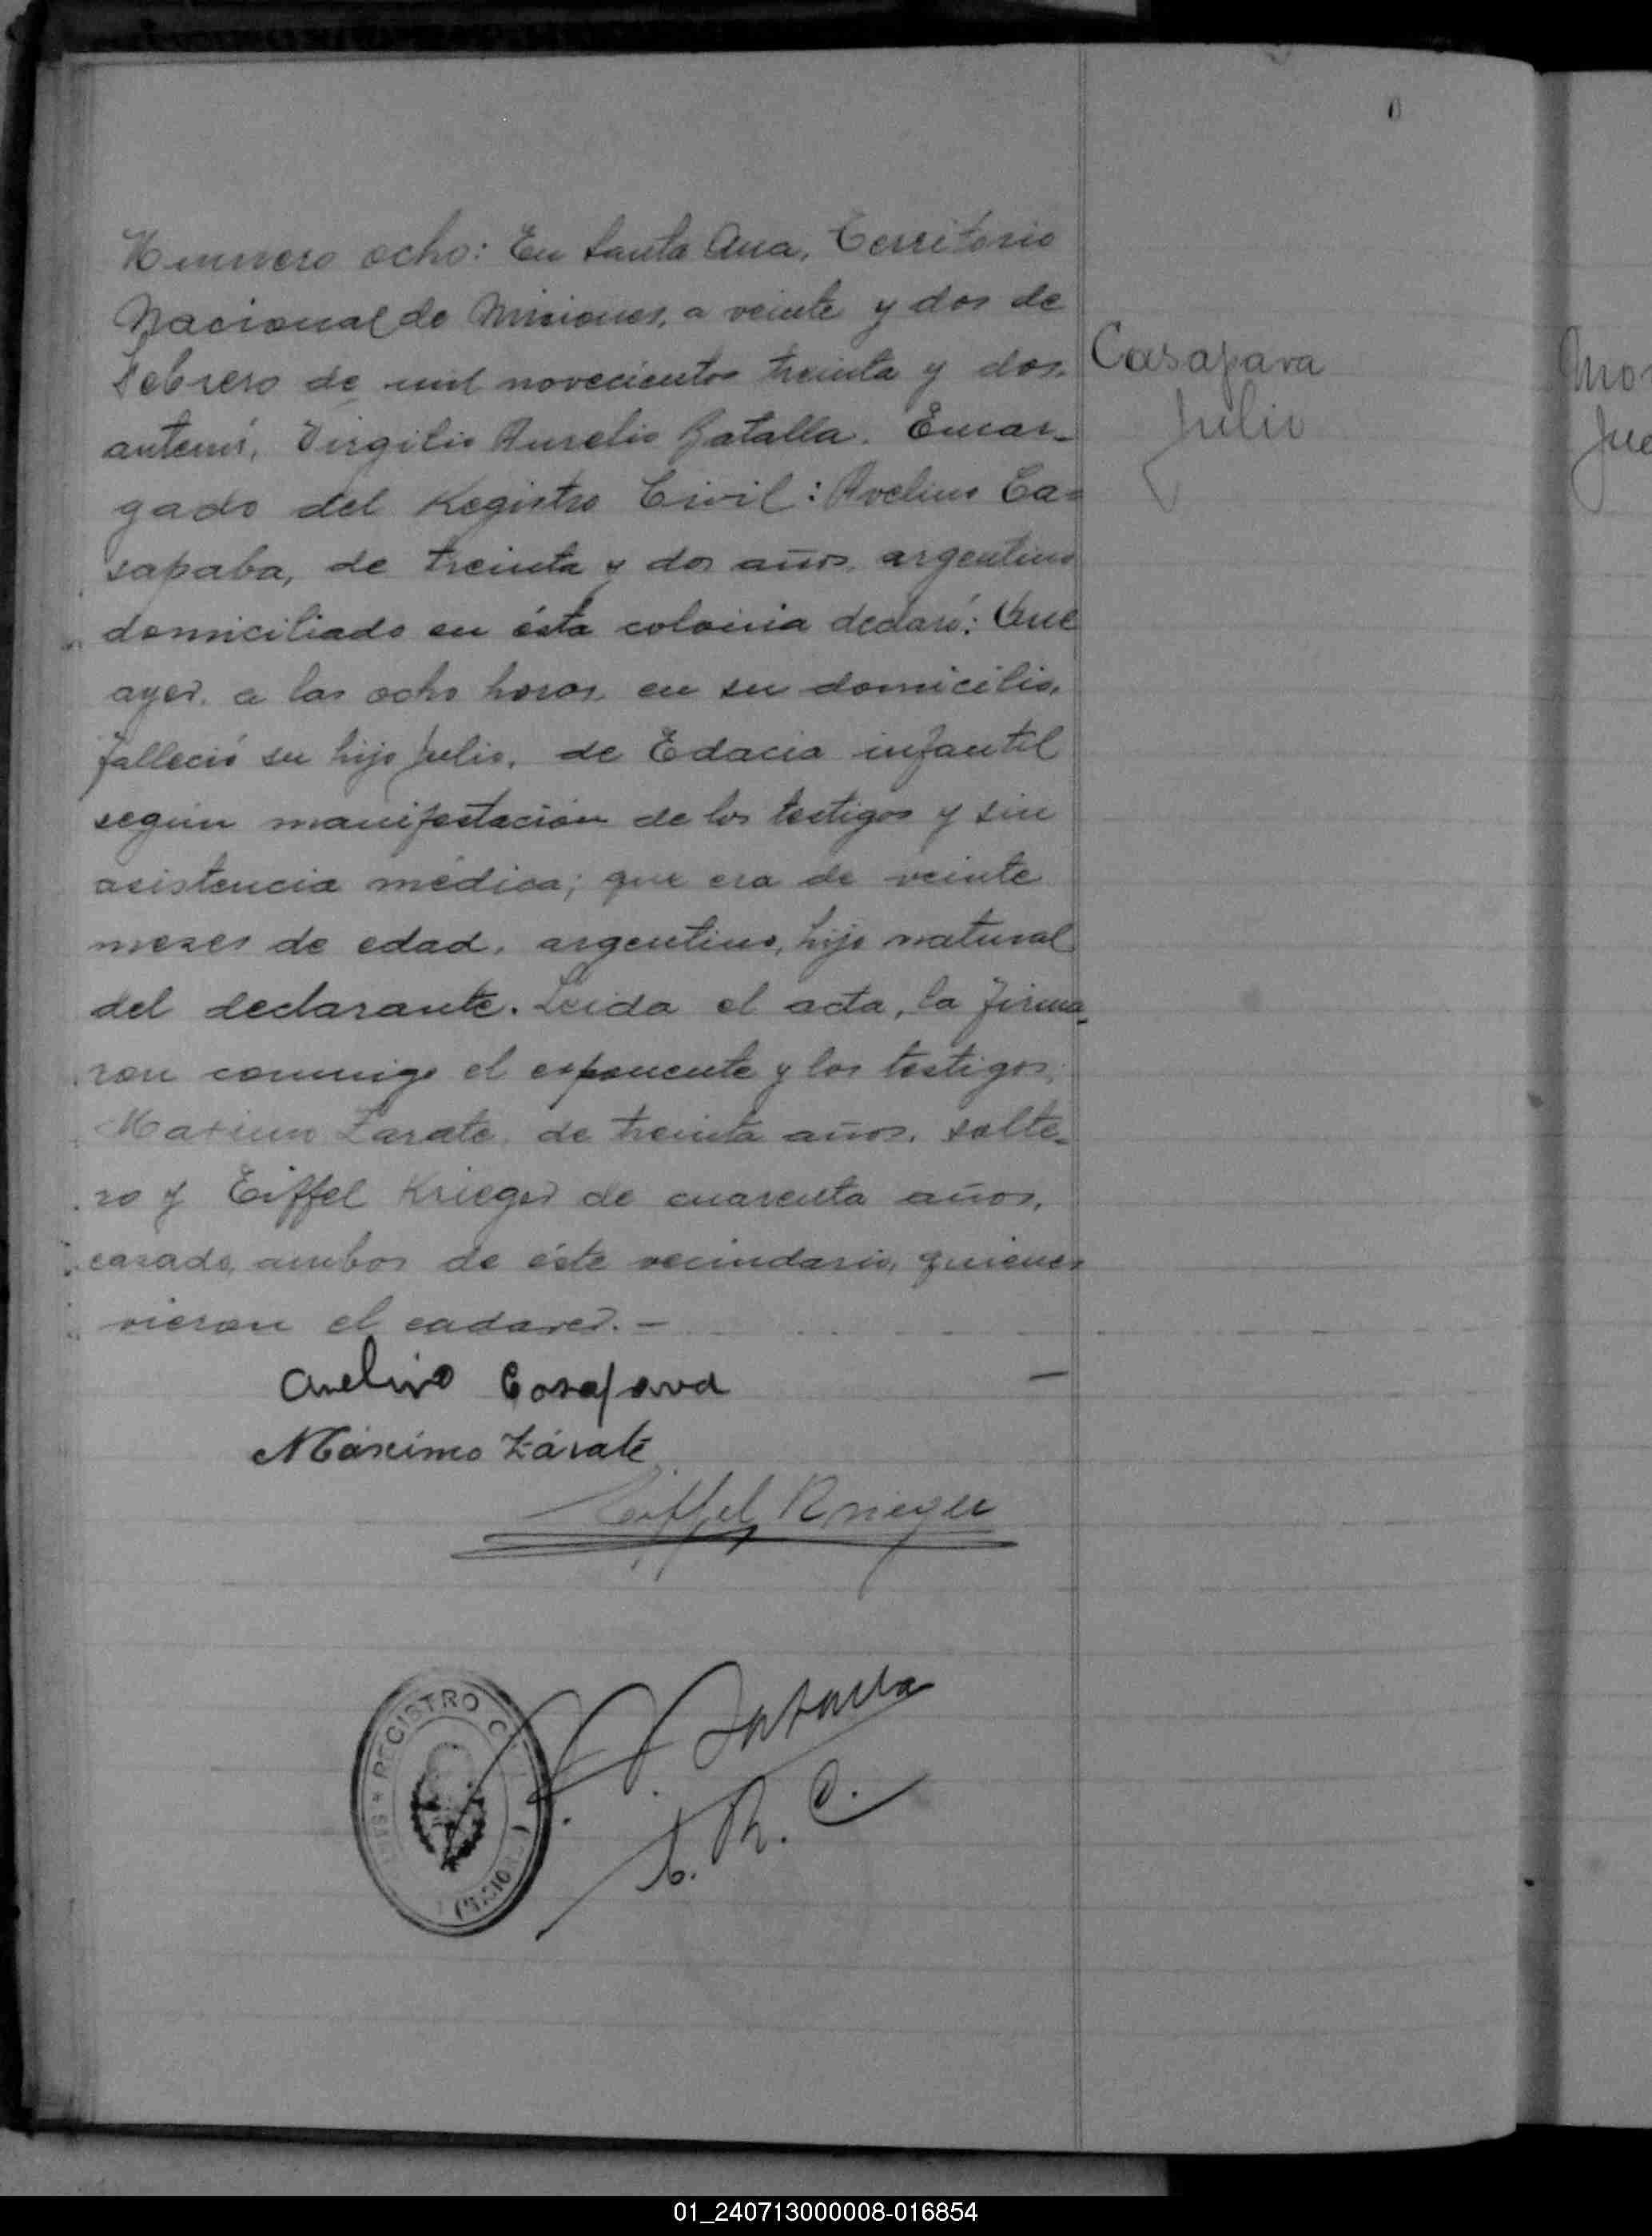 Numero ocho: En Santa Ana, Territorio
Nacional de Misiones, a veinte y dos de
Febrero de mil novecientos treinta y dos.
antemí, Virgilio Aurelio Batalla. Encar-
gado del Registro Civil: Avelino Ca=
sapaba, de treinta y dos años, argentino
domiciliado en ésta colonia declaró: Que
ayer, a las ocho horas, en su domicilio,
falleció su hijo Julio, de Edacia infantil
según manifestación de los testigos y sin
asistencia médica; que era de veinte
meses de edad, argentino, hijo natural
del declarante. Leida el acta, la firma-
ron conmigo el exponente y los testigos,
Maximo Zarate, de treinta años, solte-
ro y Eiffel Krieger de cuarenta años,
casado, ambos de éste vecindario, quienes
vieron el cadaver. —
Casapava
Julio
Avelino Casapava
Máximo Zárate
Eiffel Krieger
Batalla
E. R. C.
REGISTRO C
Mo
Ju
01_240713000008-016854